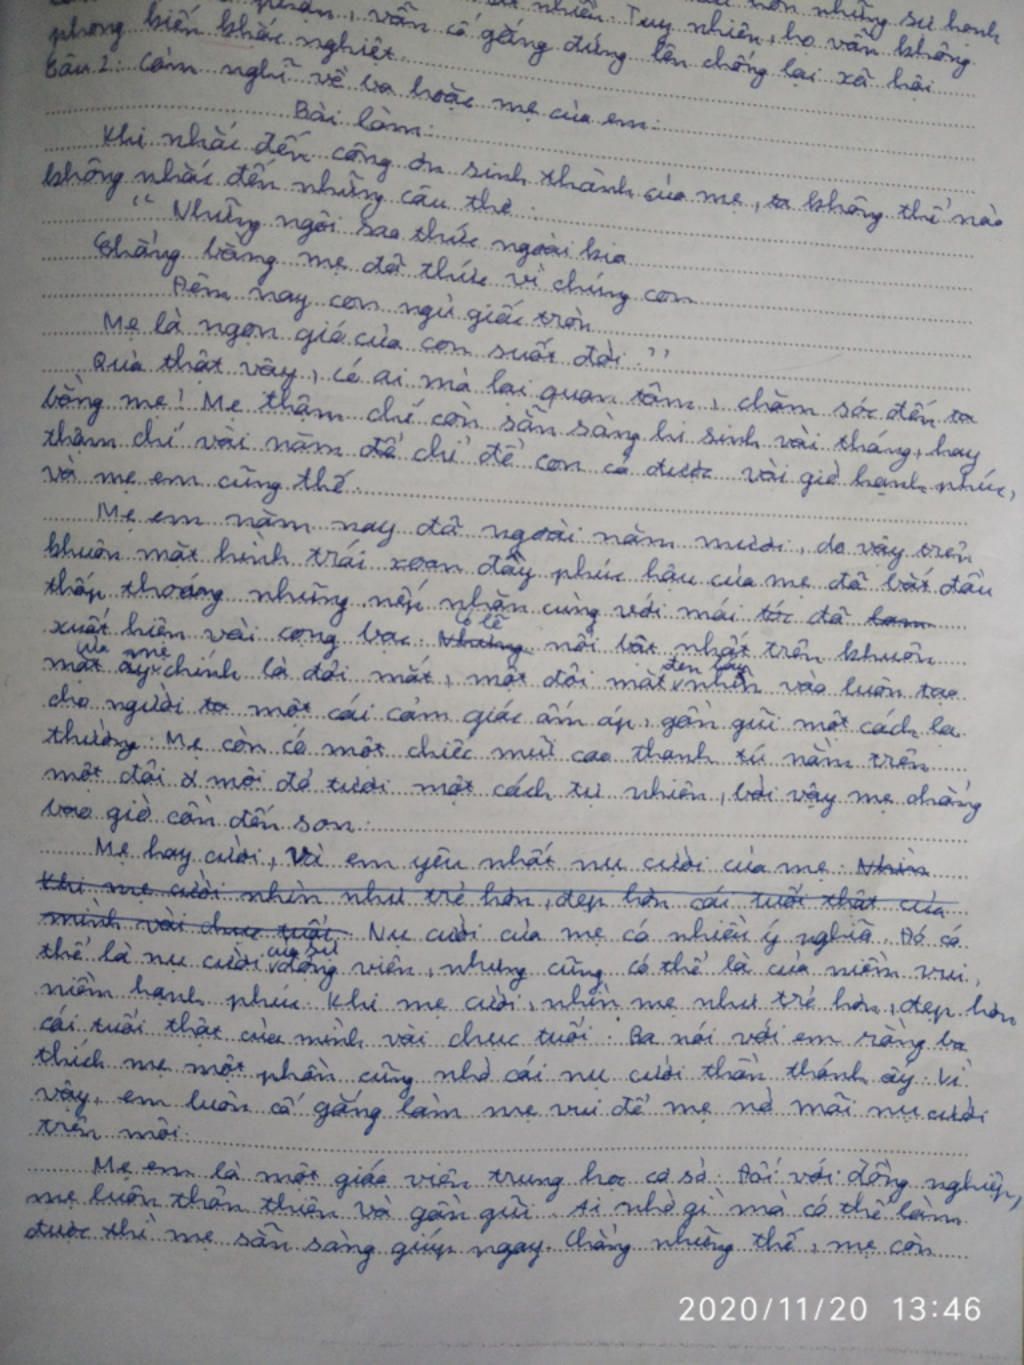 những sự hành
nhiên. Tuy nhiên, họ vẫn không
phong kiến khắc nghiệt, vẫn cố gắng đứng lên chống lại xã hội
Câu 2: Cảm nghĩ về ba hoặc mẹ của em.
Bài làm:
Khi nhắc đến công ơn sinh thành của mẹ, ta không thể nào
không nhắc đến những câu thơ:
" Những ngôi sao thức ngoài kia
Chẳng bằng mẹ đã thức vì chúng con
Đêm nay con ngủ giấc tròn
Mẹ là ngọn gió của con suốt đời."
Quả thật vậy, có ai mà lại quan tâm, chăm sóc đến ta
bằng mẹ! Mẹ thậm chí còn sẵn sàng hi sinh vài tháng, hay
thậm chí vài năm để chỉ để con có được vài giờ hạnh phúc,
và mẹ em cũng thế.
Mẹ em năm nay đã ngoài năm mươi, do vậy trên
khuôn mặt hình trái xoan đầy phúc hậu của mẹ đã bắt đầu
thấp thoáng những nếp nhăn cùng với mái tóc đã lam
xuất hiện vài cọng bạc. Nhưng có lẽ nổi bật nhất trên khuôn
mặt ấy của mẹ chính là đôi mắt, một đôi mắt đen láy nhìn vào luôn tạo
cho người ta một cái cảm giác ấm áp, gần gũi một cách lạ
thường. Mẹ còn có một chiếc mũi cao thanh tú nằm trên
một đôi môi đỏ tươi một cách tự nhiên, bởi vậy mẹ chẳng
bao giờ cần đến son.
Mẹ hay cười, vì em yêu nhất nụ cười của mẹ. Nhìn
Khi mẹ cười nhìn như trẻ hơn, đẹp hơn cái tuổi thật của
mình vài chục tuổi. Nụ cười của mẹ có nhiều ý nghĩa. Đó có
thể là nụ cười của sự động viên, nhưng cũng có thể là của niềm vui,
niềm hạnh phúc. Khi mẹ cười, nhìn mẹ như trẻ hơn, đẹp hơn
cái tuổi thật của mình vài chục tuổi. Ba nói với em rằng ba
thích mẹ một phần cũng nhờ cái nụ cười thần thánh ấy. Vì
vậy, em luôn cố gắng làm mẹ vui để mẹ nở mãi nụ cười
trên môi.
Mẹ em là một giáo viên trung học cơ sở. Đối với đồng nghiệp,
mẹ luôn thân thiện và gần gũi. Ai nhờ gì mà có thể làm
được thì mẹ sẵn sàng giúp ngay. Chẳng những thế, mẹ còn
2020/11/20 13:46